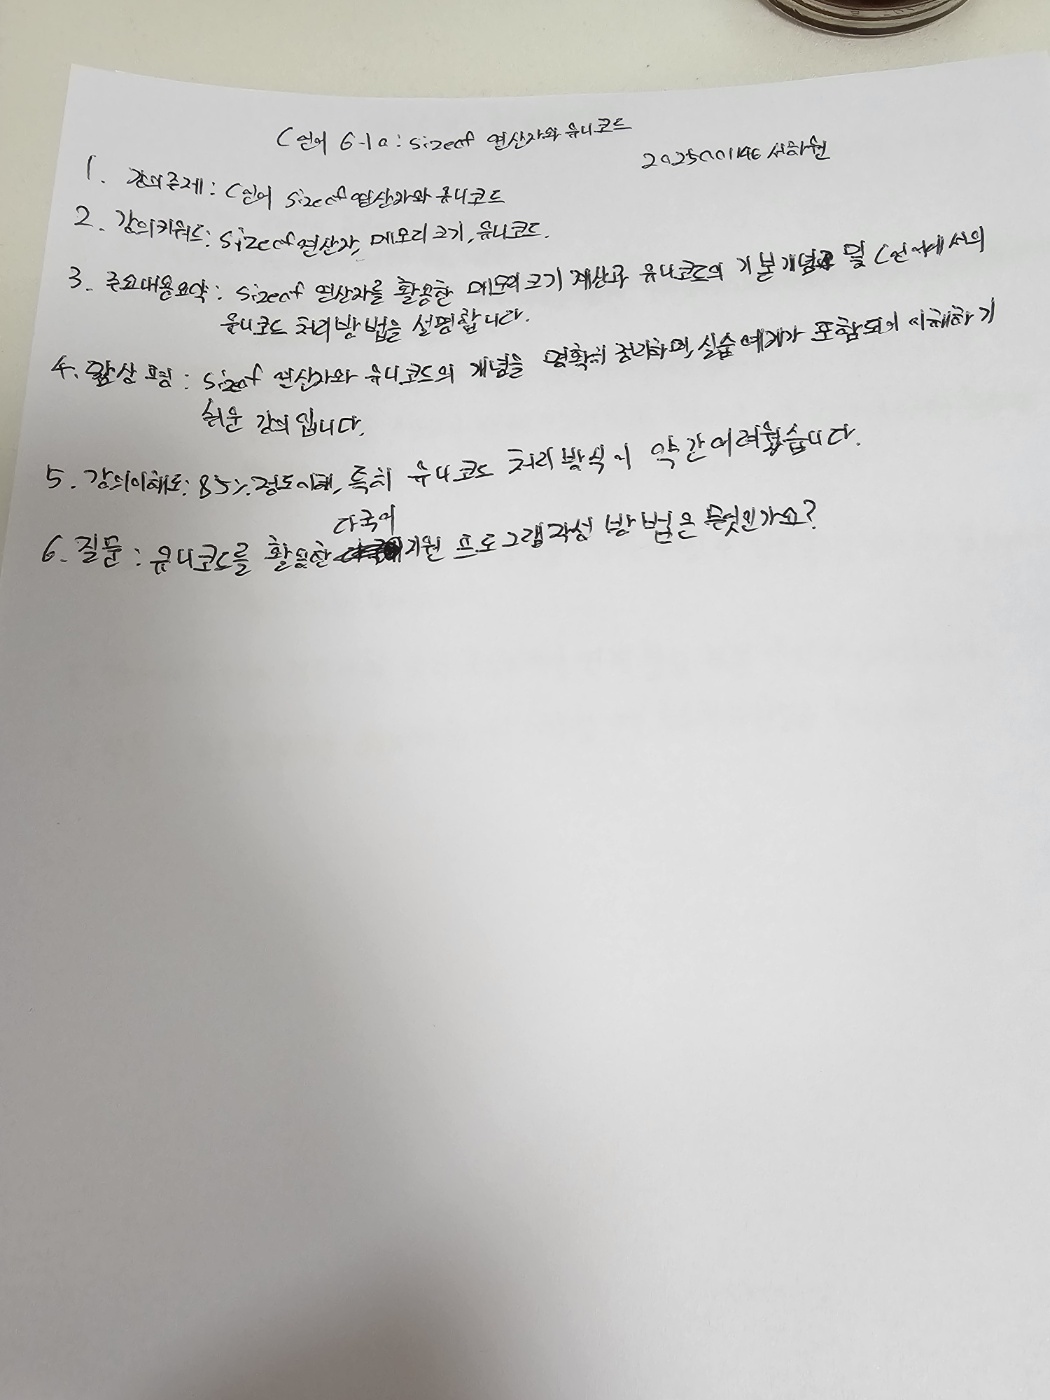 C언어 6-10: sizeof 연산자와 유니코드
202500146 서하원
1. 강의주제: C언어 sizeof 연산자와 유니코드
2. 강의키워드: sizeof 연산자, 메모리 크기, 유니코드.
3. 주요내용요약: sizeof 연산자를 활용한 메모리 크기 계산과 유니코드의 기본개념 및 C언어에서의
유니코드 처리 방법을 설명합니다.
4. 포함: sizeof 연산자와 유니코드의 개념을 명확히 정리하며, 실습 예제가 포함되어 이해하기
쉬운 강의 입니다.
5. 강의이해도: 85% 정도이해, 특히 유니코드 처리 방식이 약간 어려웠습니다.
다국어
6. 질문: 유니코드를 활용한 지원 프로그램 작성 방법은 무엇인가요?